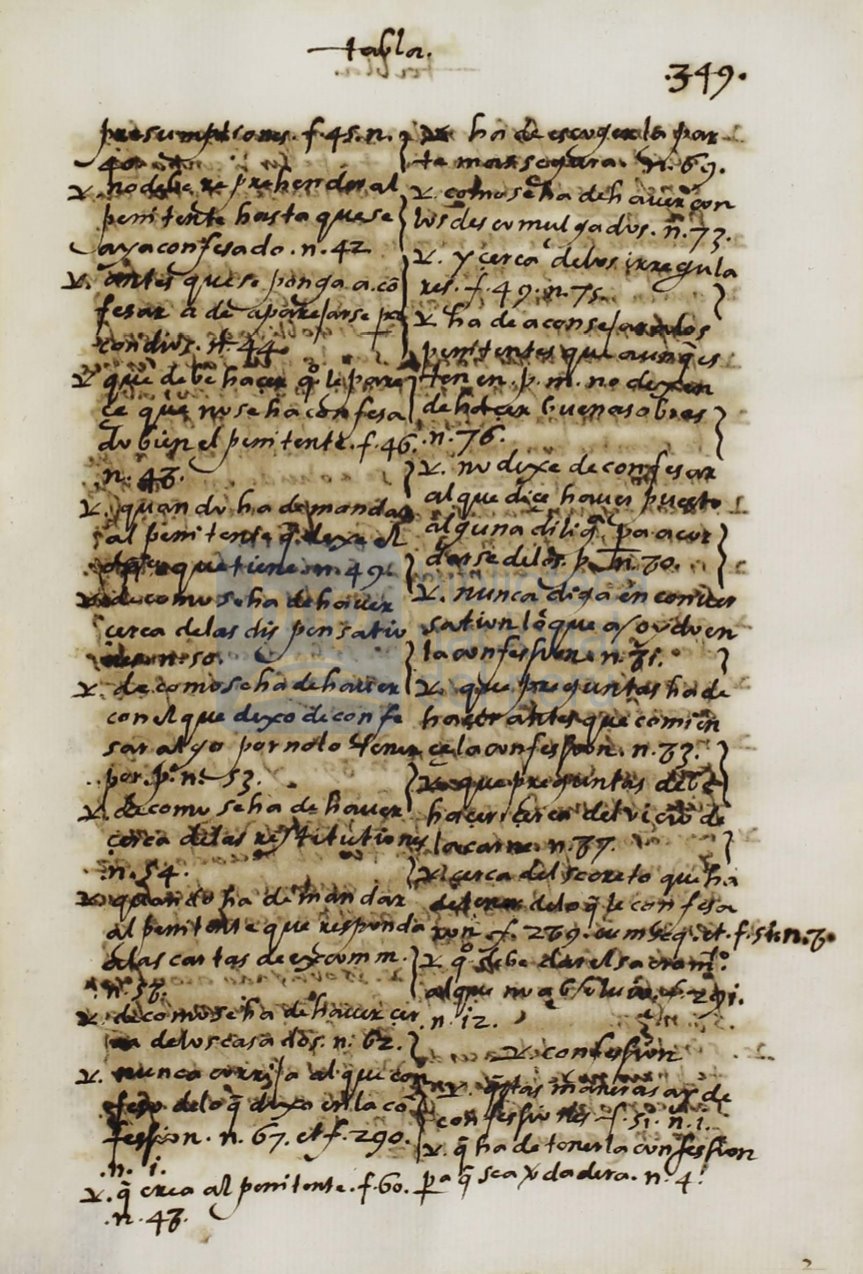 tabla.
.349.
presumptiones. f. 45. n.
40.
v. no debe reprehender al
penitente hasta que se
aya confesado. n. 42
v. antes que se ponga a cō
fesar a de aparejarse pa
con dios. n. 44
v. que debe hacer q̄ le pare
ce que no se ha confesa
do bien el penitente. f. 46.
n. 48.
v. quando ha de mandar
al penitente q̄. dexe el
que tiene. n. 49.
v. de como se ha de haver
cerca de las dispensatio
nes. n. 50.
v. de como se ha de haver
con el que dexo de confe
sar algo por no lo tener
por. pº. n. 53.
v. de como se ha de haver
cerca de las restitutiones
n. 54.
v. quando ha de mandar
al penitente que responda
a las cartas de excomm.
n. 58.
v. de como se ha de haver cer
ca de los casados. n. 62.
v. nunca corrija al que con
feso de lo q̄ dixo en la cō
fession. n. 67. et f. 290.
n. 1.
v. q̄ crea al penitente. f. 60.
n. 48.
v. ha de escoger la par
te mas segura. n. 69.
v. como se ha de haver con
los descomulgados. n. 73.
v. y cerca de los irregula
res. f. 49. n. 75.
v. ha de aconsejar a los
penitentes que aunq̄ es
ten en. p. m. no dexen
de hacer buenas obras
n. 76.
v. no dexe de confesar
al que dice haver puesto
alguna diliḡ. pa acor
darse de los. p. n. 80.
v. nunca diga en conver
sation lo que a oydo en
la confession. n. 81.
v. que preguntas ha de
hacer antes que comien
ce la confession. n. 83.
v. que preguntas debe
hacer cerca del vicio de
la carne. n. 87.
v. cerca del secreto que ha
de tener de lo q̄ le confesa
ron. f. 289. cum seq. et. f. 51. n. 8.
v. qº debe dar el sacramtº.
al que no absolvio. f. 291.
n. 12.
v. confession
v. q̄ntas maneras ay de
confessiones. f. 51. n. 1.
v. q̄ ha de tener la confession
pa q̄ sea vdadera. n. 4.